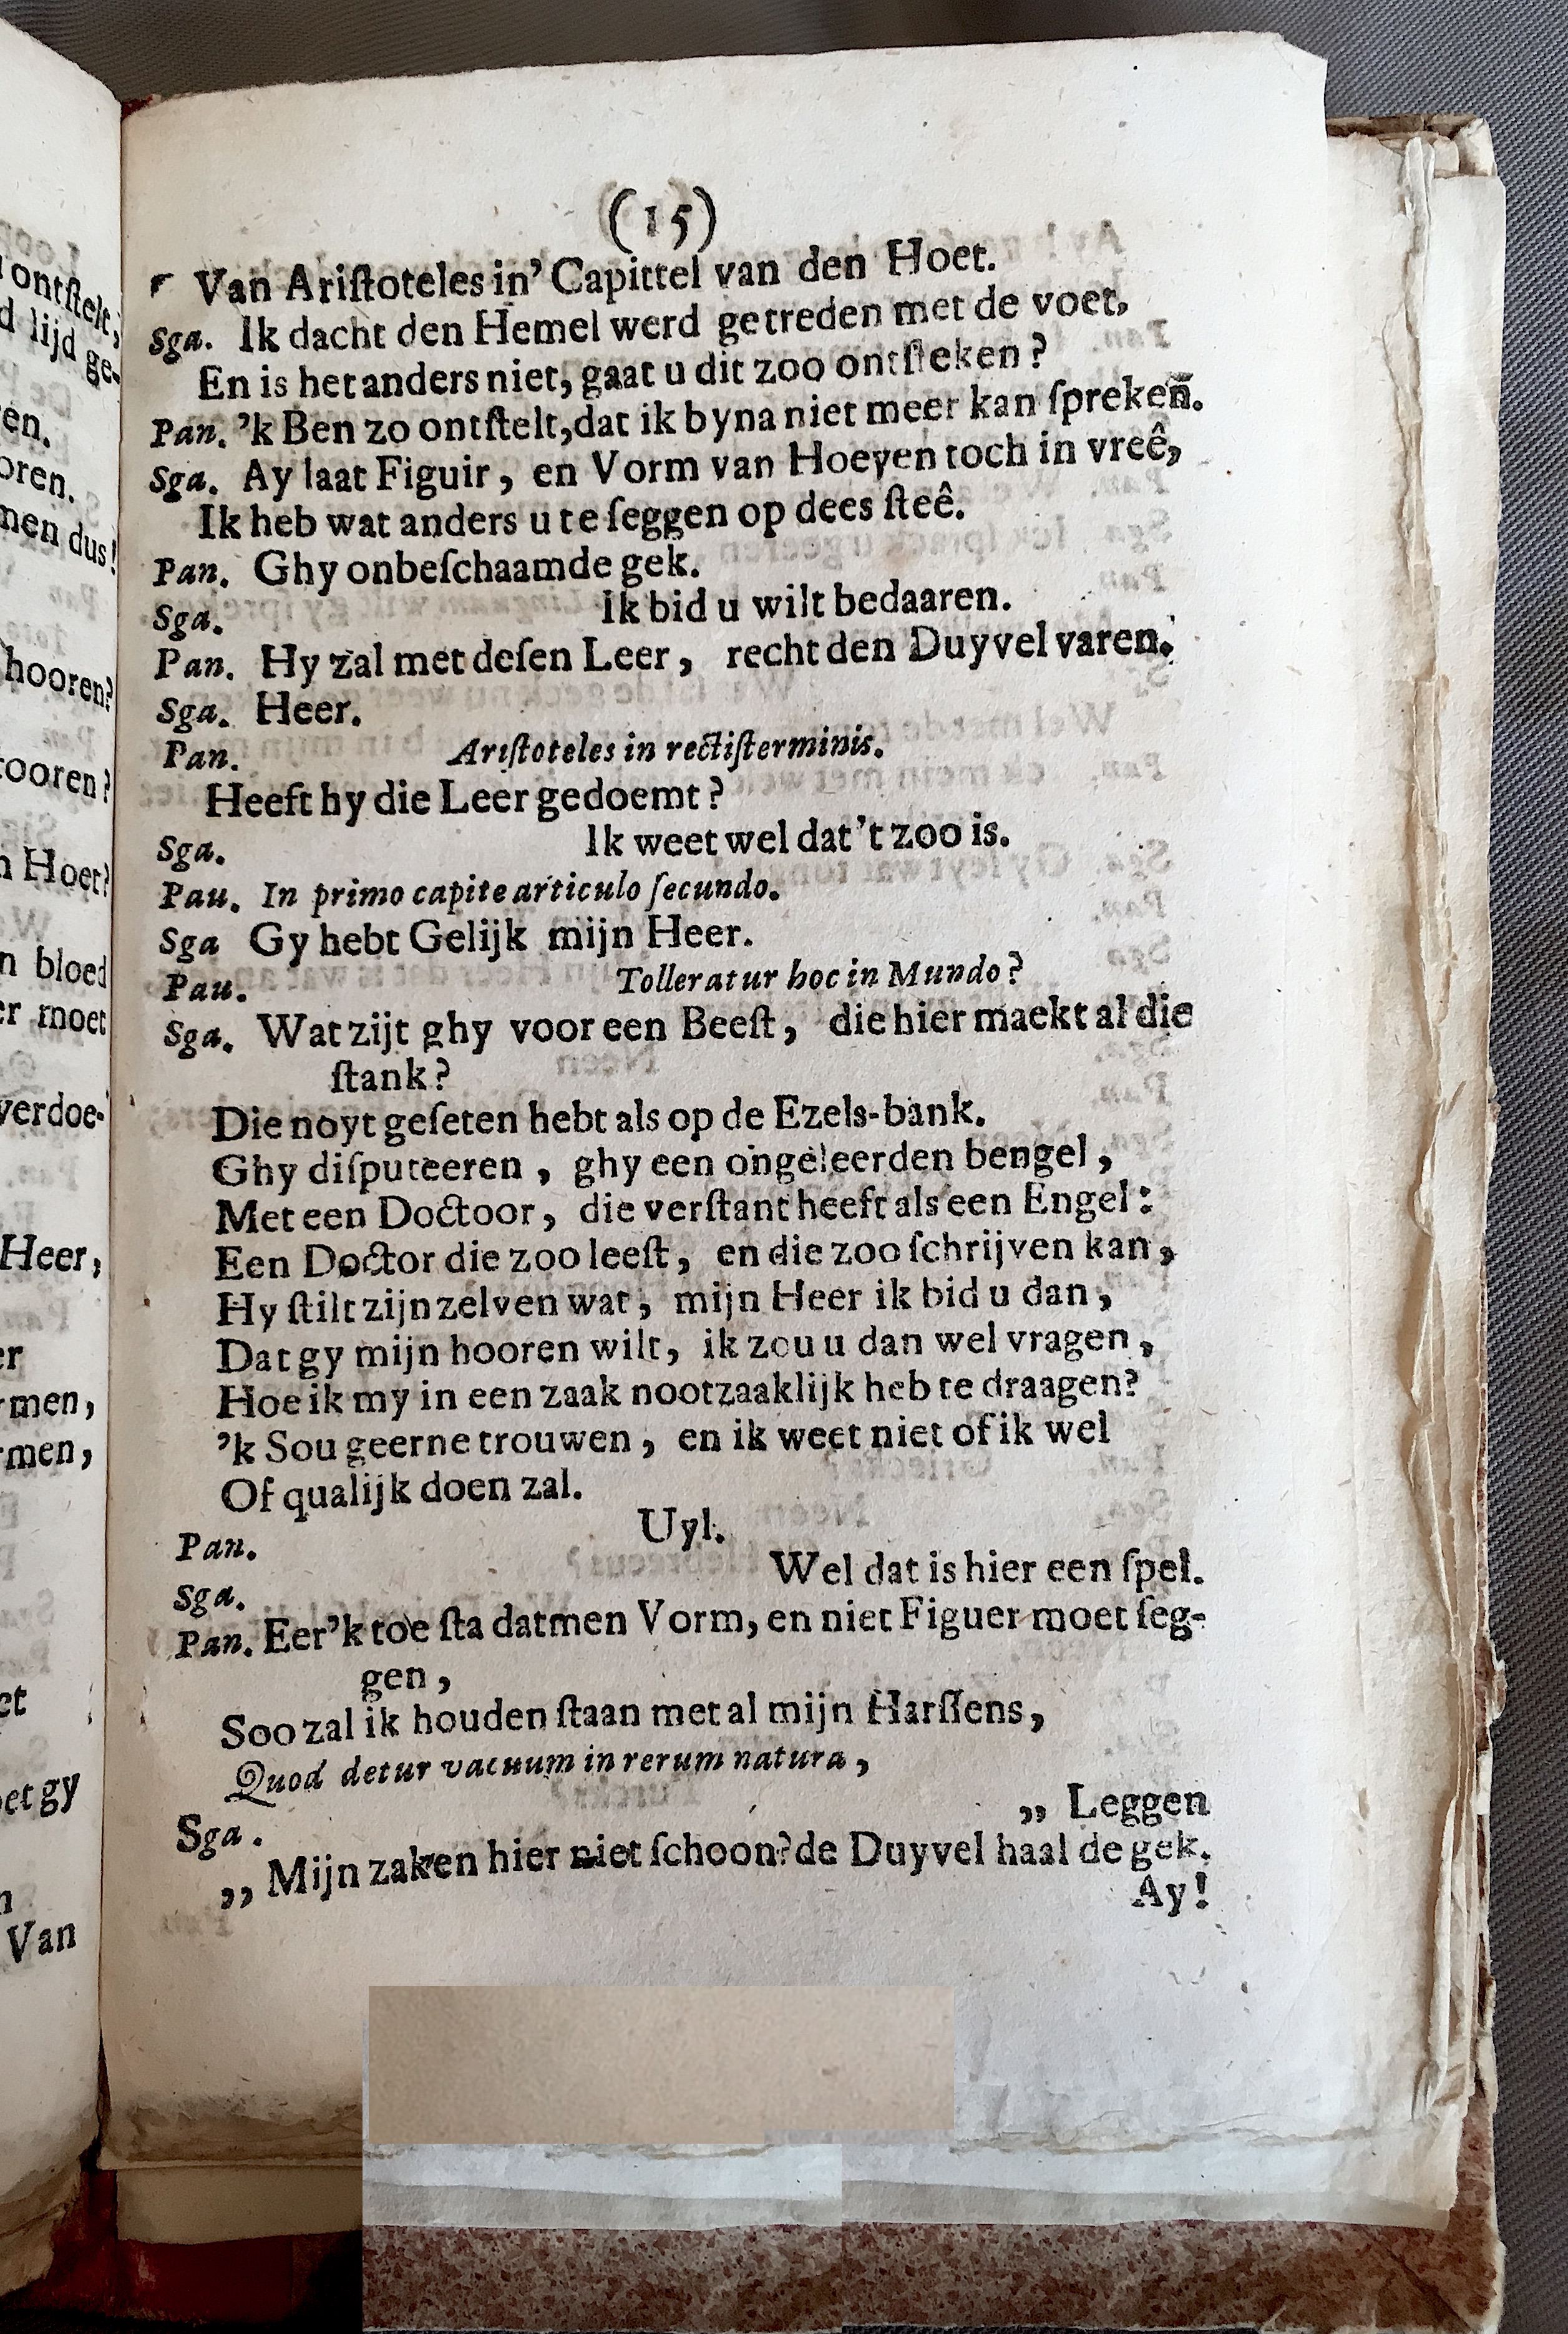 (15)
Van Ariſtoteles in' Capittel van den Hoet.
Sga. Ik dacht den Hemel werd getreden met de voet,
En is het anders niet, gaat u dit zoo ontſteken?
Pan. 'k Ben zo ontſtelt, dat ik byna niet meer kan ſpreken.
Sga. Ay laat Figuir, en Vorm van Hoeyen toch in vreê,
Ik heb wat anders u te ſeggen op dees ſteê.
Pan. Ghy onbeſchaamde gek.
Sga. Ik bid u wilt bedaaren.
Pan. Hy zal met deſen Leer, recht den Duyvel varen.
Sga. Heer.
Pan. Ariſtoteles in rectiſterminis.
Heeft hy die Leer gedoemt?
Sga. Ik weet wel dat 't zoo is.
Pau. In primo capite articulo ſecundo.
Sga Gy hebt Gelijk mijn Heer.
Pau. Tolleratur hoc in Mundo?
Sga. Wat zijt ghy voor een Beeſt, die hier maekt al die
ſtank?
Die noyt geſeten hebt als op de Ezels-bank.
Ghy diſputeeren, ghy een ongeleerden bengel,
Met een Doctoor, die verſtant heeft als een Engel:
Een Doctor die zoo leeſt, en die zoo ſchrijven kan,
Hy ſtilt zijn zelven wat, mijn Heer ik bid u dan,
Dat gy mijn hooren wilt, ik zou u dan wel vragen,
Hoe ik my in een zaak nootzaaklijk heb te draagen?
'k Sou geerne trouwen, en ik weet niet of ik wel
Of qualijk doen zal.
Pan. Uyl.
Sga. Wel dat is hier een ſpel.
Pan. Eer 'k toe ſta datmen Vorm, en niet Figuer moet ſeg-
gen,
Soo zal ik houden ſtaan met al mijn Harſſens,
Quod detur vacuum in rerum natura,
Sga. ,, Leggen
,, Mijn zaken hier niet ſchoon? de Duyvel haal de gek.
Ay!
ontſtelt,
lijd ge-
en.
oren.
men dus!
hooren?
tooren?
Hoet?
bloed
moet
verdoe-
Heer,
er
men,
men,
et
et gy
Van